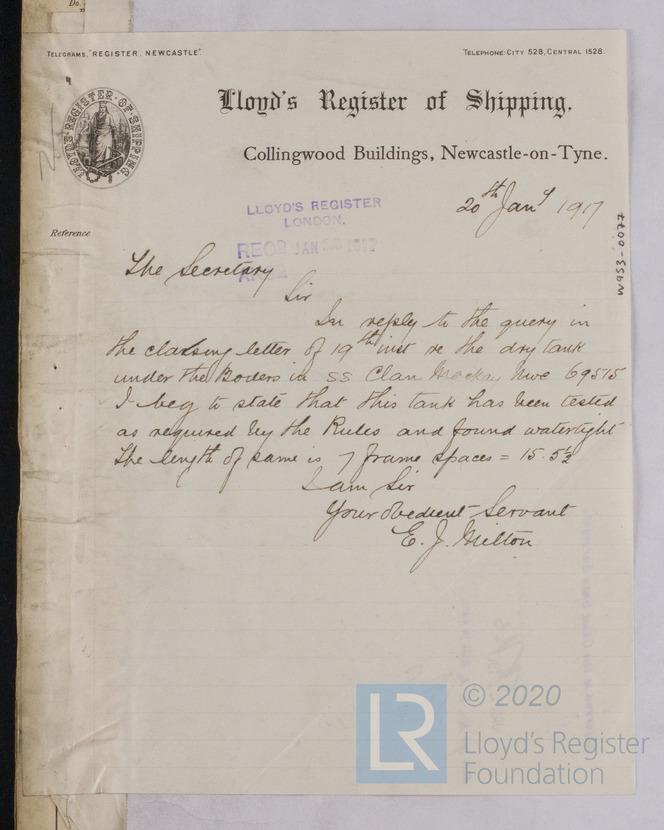 Do.
TELEGRAMS, "REGISTER, NEWCASTLE".
TELEPHONE: CITY 528, CENTRAL 1528.
LLOYDS REGISTER OF SHIPPING.
Lloyd's Register of Shipping.
Collingwood Buildings, Newcastle-on-Tyne.
20th Jany 1917
LLOYD'S REGISTER
LONDON.
Reference
W953-0077
The Secretary
Sir
In reply to the query in
the classing letter of 19th inst re the dry tank
under the Boilers in SS Clan Mackay Nwc 69515
I beg to state that this tank has been tested
as required by the Rules and found watertight
The length of same is 7 frame spaces = 15.5½
I am Sir
Your obedient Servant
E. J. Milton
© 2020
LR
Lloyd's Register
Foundation